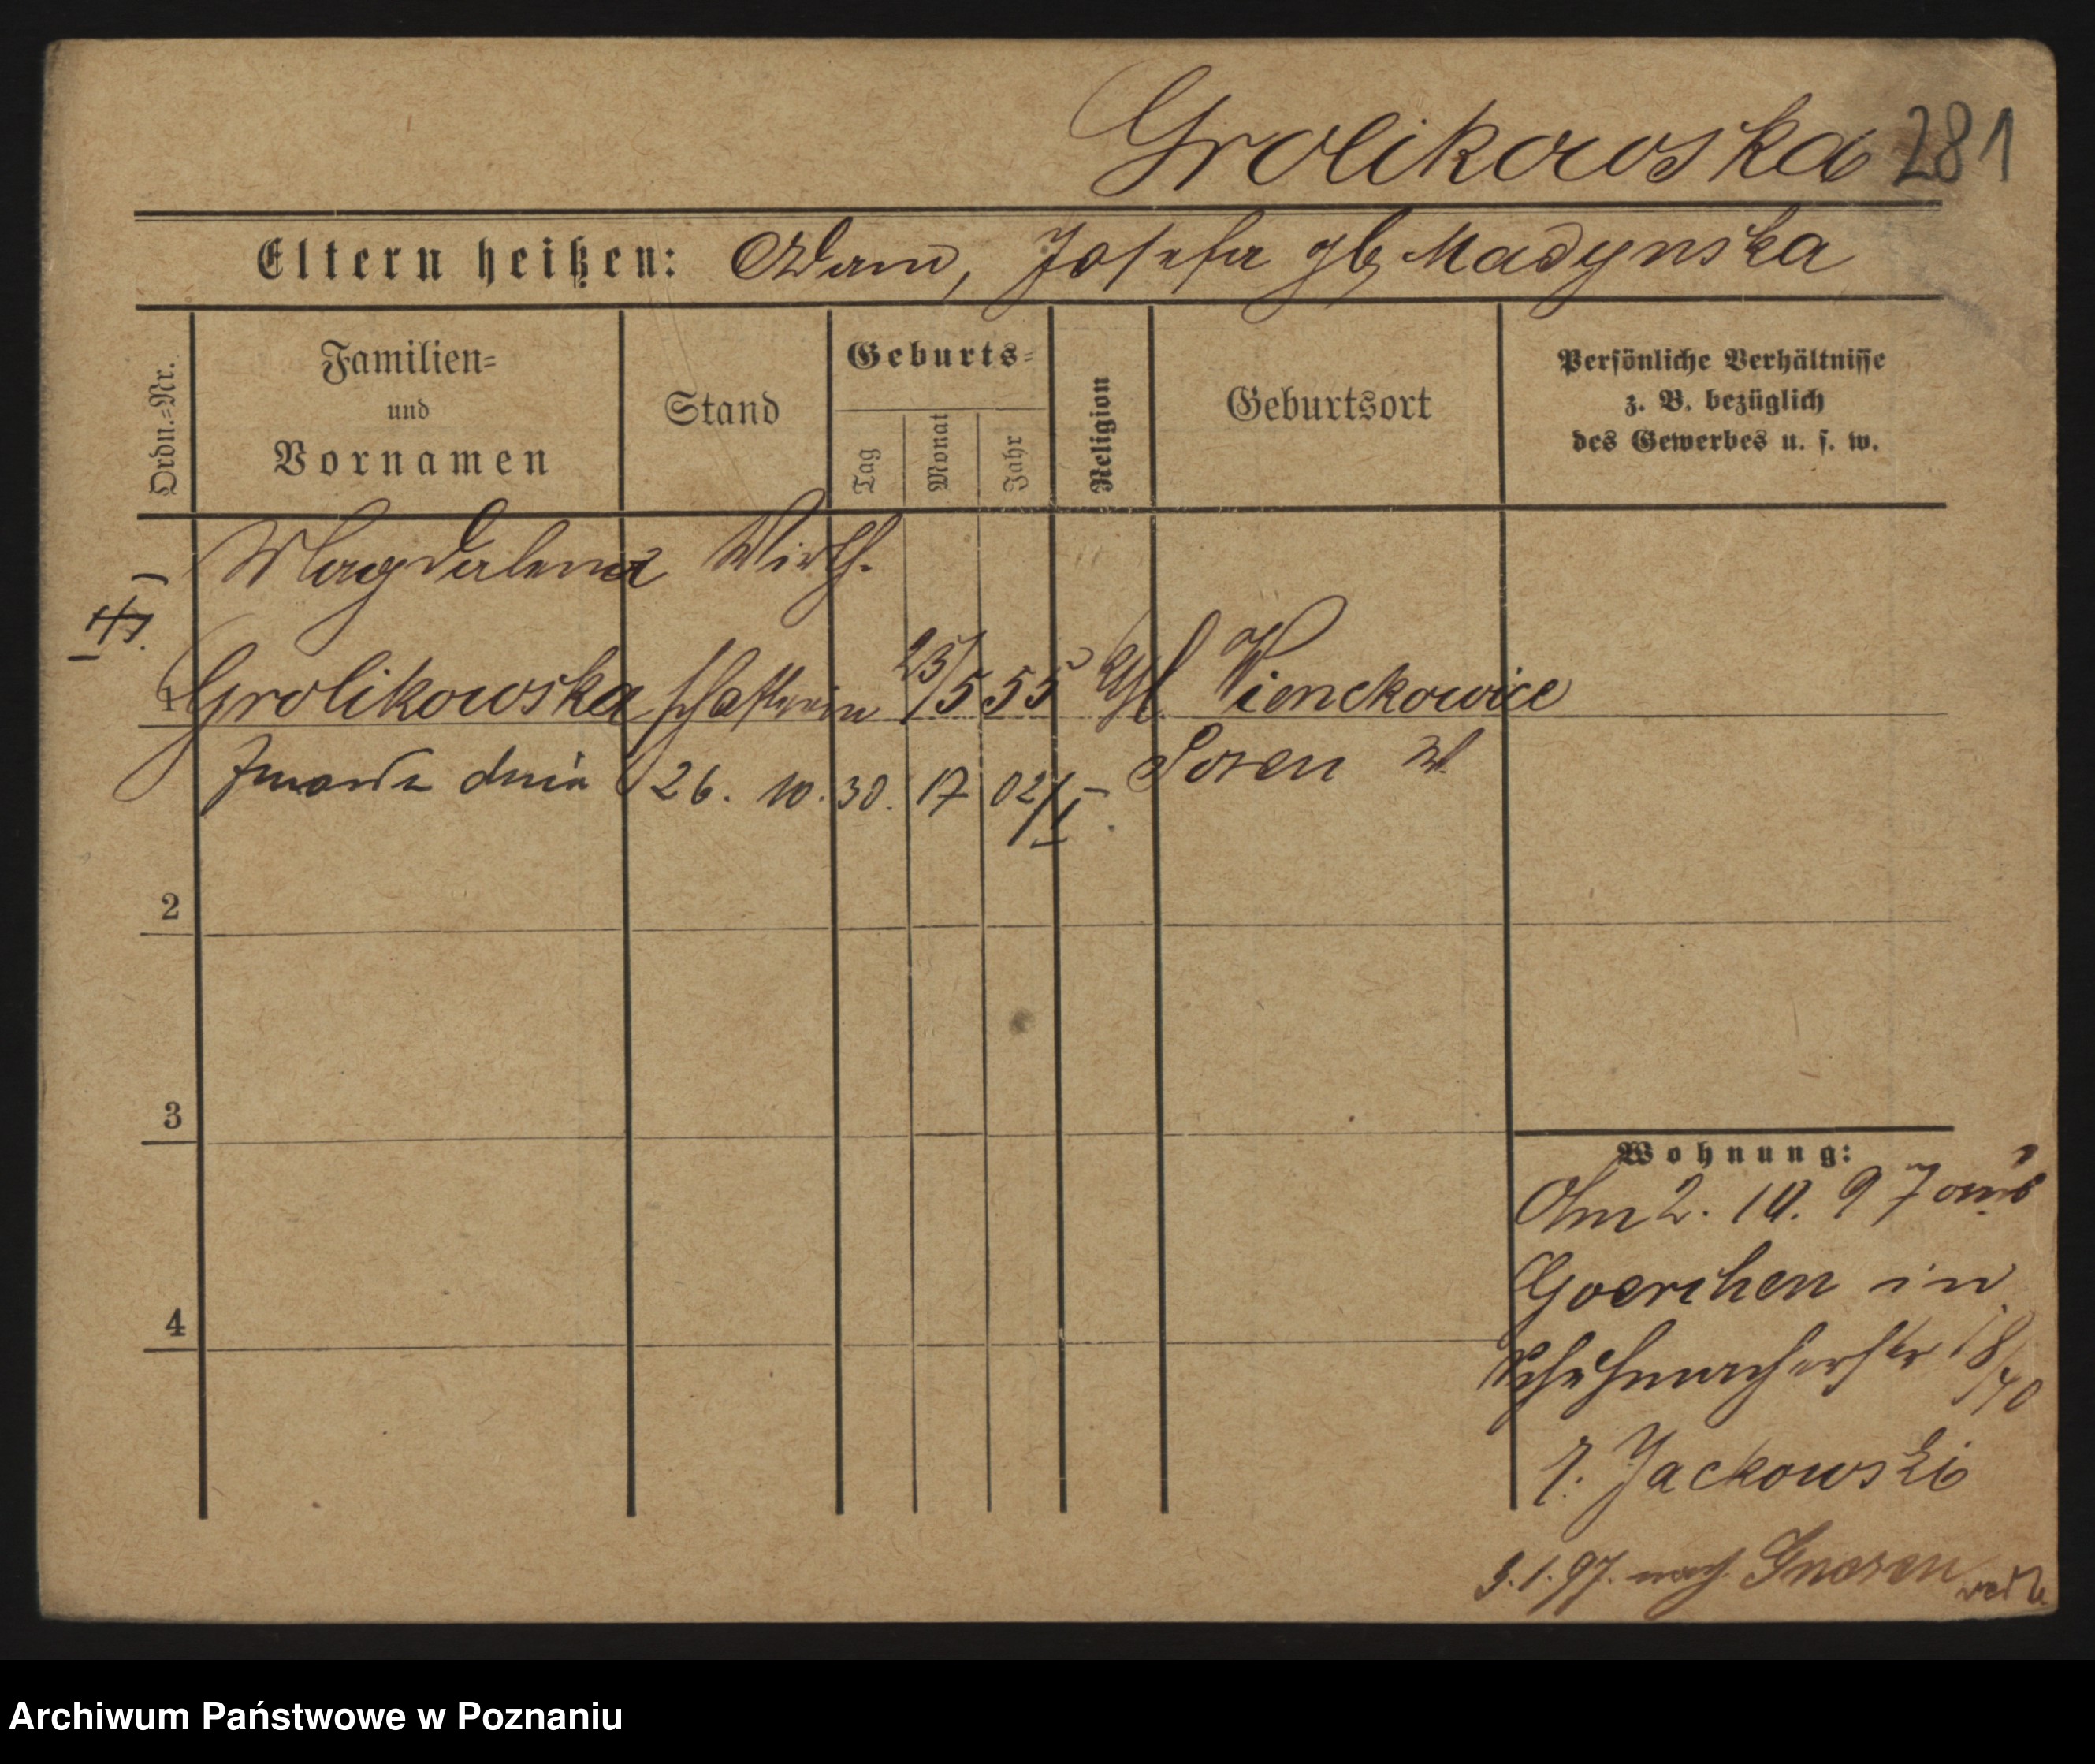 Grolikowska 281
Eltern heißen: Adam, Josefa gb Madynska
Ordn.=Nr.
Familien=
und
Vornamen
Stand
Geburts=
Tag
Monat
Jahr
Religion
Geburtsort
Persönliche Verhältnisse
z. B. bezüglich
des Gewerbes u. s. w.
Magdalena Wirth.
1 Grolikowska schafterin 23/5 55 kath Wienckowice
Posen W.
dnia 26. 10. 30. 17 02/I.
2
3
4
Wohnung:
Am 2. 10. 97 aus
Goerchen in
Schuhmacherstr 18/40
b. Jackowski
9.1.97. nach Gnesen
Archiwum Państwowe w Poznaniu